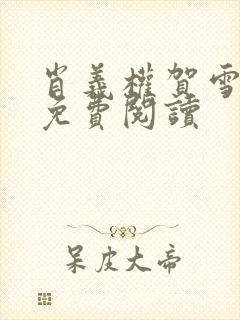 肖義權賀雪
免費閱讀
呆皮大帝